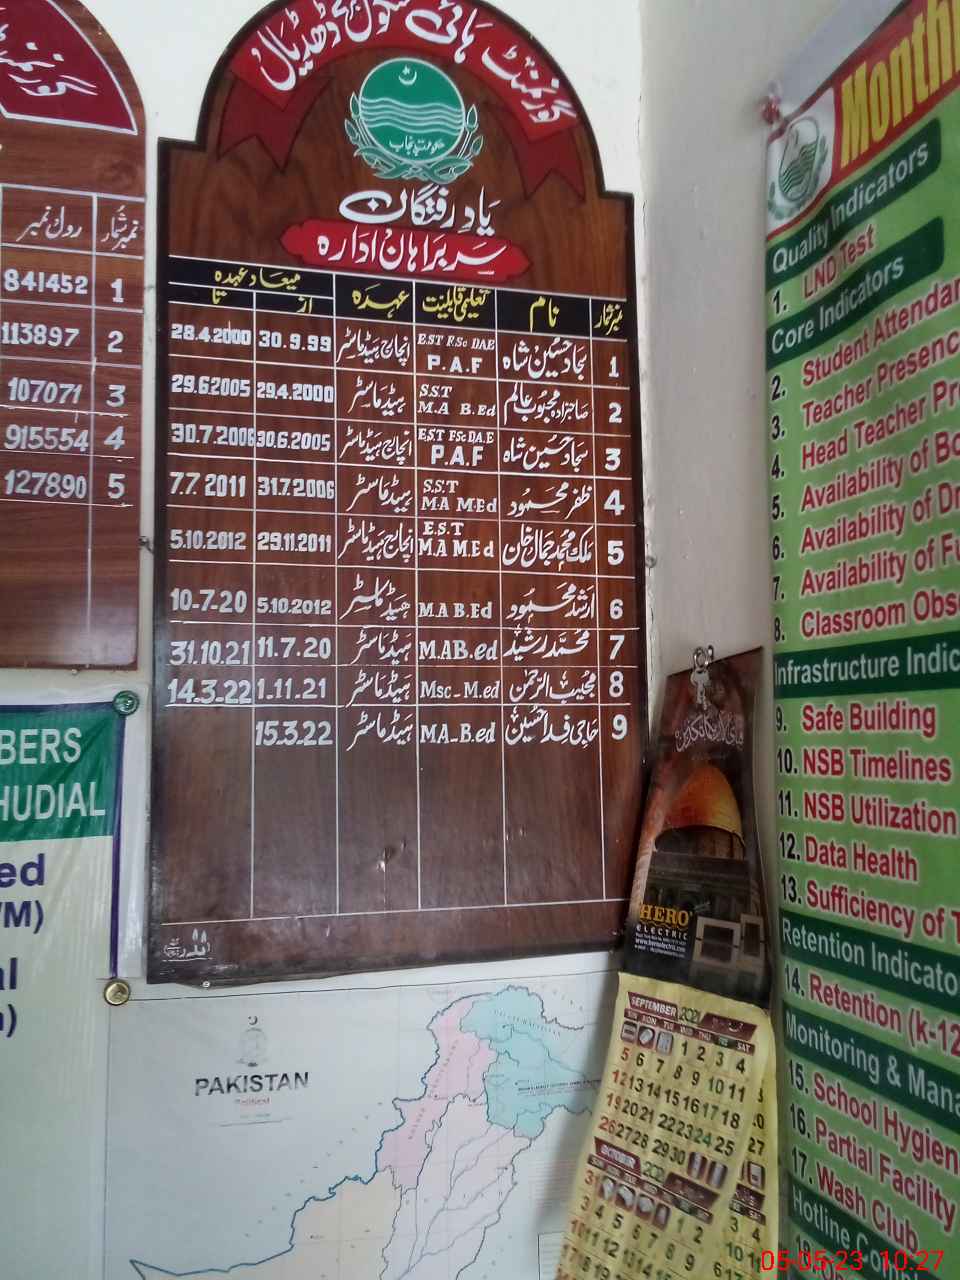 گورنمنٹ ہائی سکول
حکومت پنجاب
یادِ رفتگان
سربراہان ادارہ
نمبر شمار نام تعلیمی قابلیت عہدہ میعاد عہدہ
از تا
1 سجاد حسین شاہ E.ST F.Sc DAE P.A.F انچارج ہیڈماسٹر 30.9.99 28.4.2000
2 صاحبزادہ محبوب عالم S.S.T M.A B.Ed ہیڈماسٹر 29.4.2000 29.6.2005
3 سجاد حسین شاہ E.S.T FSc DA.E P.A.F انچارج ہیڈماسٹر 30.6.2005 30.7.2006
4 ظفر محمود S.S.T M.A M.Ed ہیڈماسٹر 31.7.2006 7.7.2011
5 ملک محمد جمال خان E.S.T M.A M.Ed انچارج ہیڈماسٹر 29.11.2011 5.10.2012
6 ارشد محمود M.A B.Ed ہیڈماسٹر 5.10.2012 10-7-20
7 محمد رشید M.AB.ed ہیڈماسٹر 11.7.20 31.10.21
8 مجیب الرحمٰن Msc-M.ed ہیڈماسٹر 1-11-21 14-3-22
9 حاجی فدا حسین MA-B.ed ہیڈماسٹر 15.3.22
نمبر شمار رول نمبر
1 841452
2 113897
3 107071
4 915554
5 127890
BERS
HUDIAL
ed
VM)
al
PAKISTAN
Political
HERO
ELECTRIC
SEPTEMBER 2021
SUN MON TUE WED THU FRI SAT
1 2 3 4
5 6 7 8 9 10 11
12 13 14 15 16 17 18
19 20 21 22 23 24 25
26 27 28 29 30
OCTOBER 2021
Month
Quality Indicators
1. LND Test
Core Indicators
2. Student Attendan
3. Teacher Presenc
4. Head Teacher Pre
5. Availability of Bo
6. Availability of Dr
7. Availability of Fu
8. Classroom Obse
Infrastructure Indic
9. Safe Building
10. NSB Timelines
11. NSB Utilization
12. Data Health
13. Sufficiency of T
Retention Indicato
14. Retention (k-12
Monitoring & Mana
15. School Hygien
16. Partial Facility
17. Wash Club
Hotline Co
05-05-23 10:27